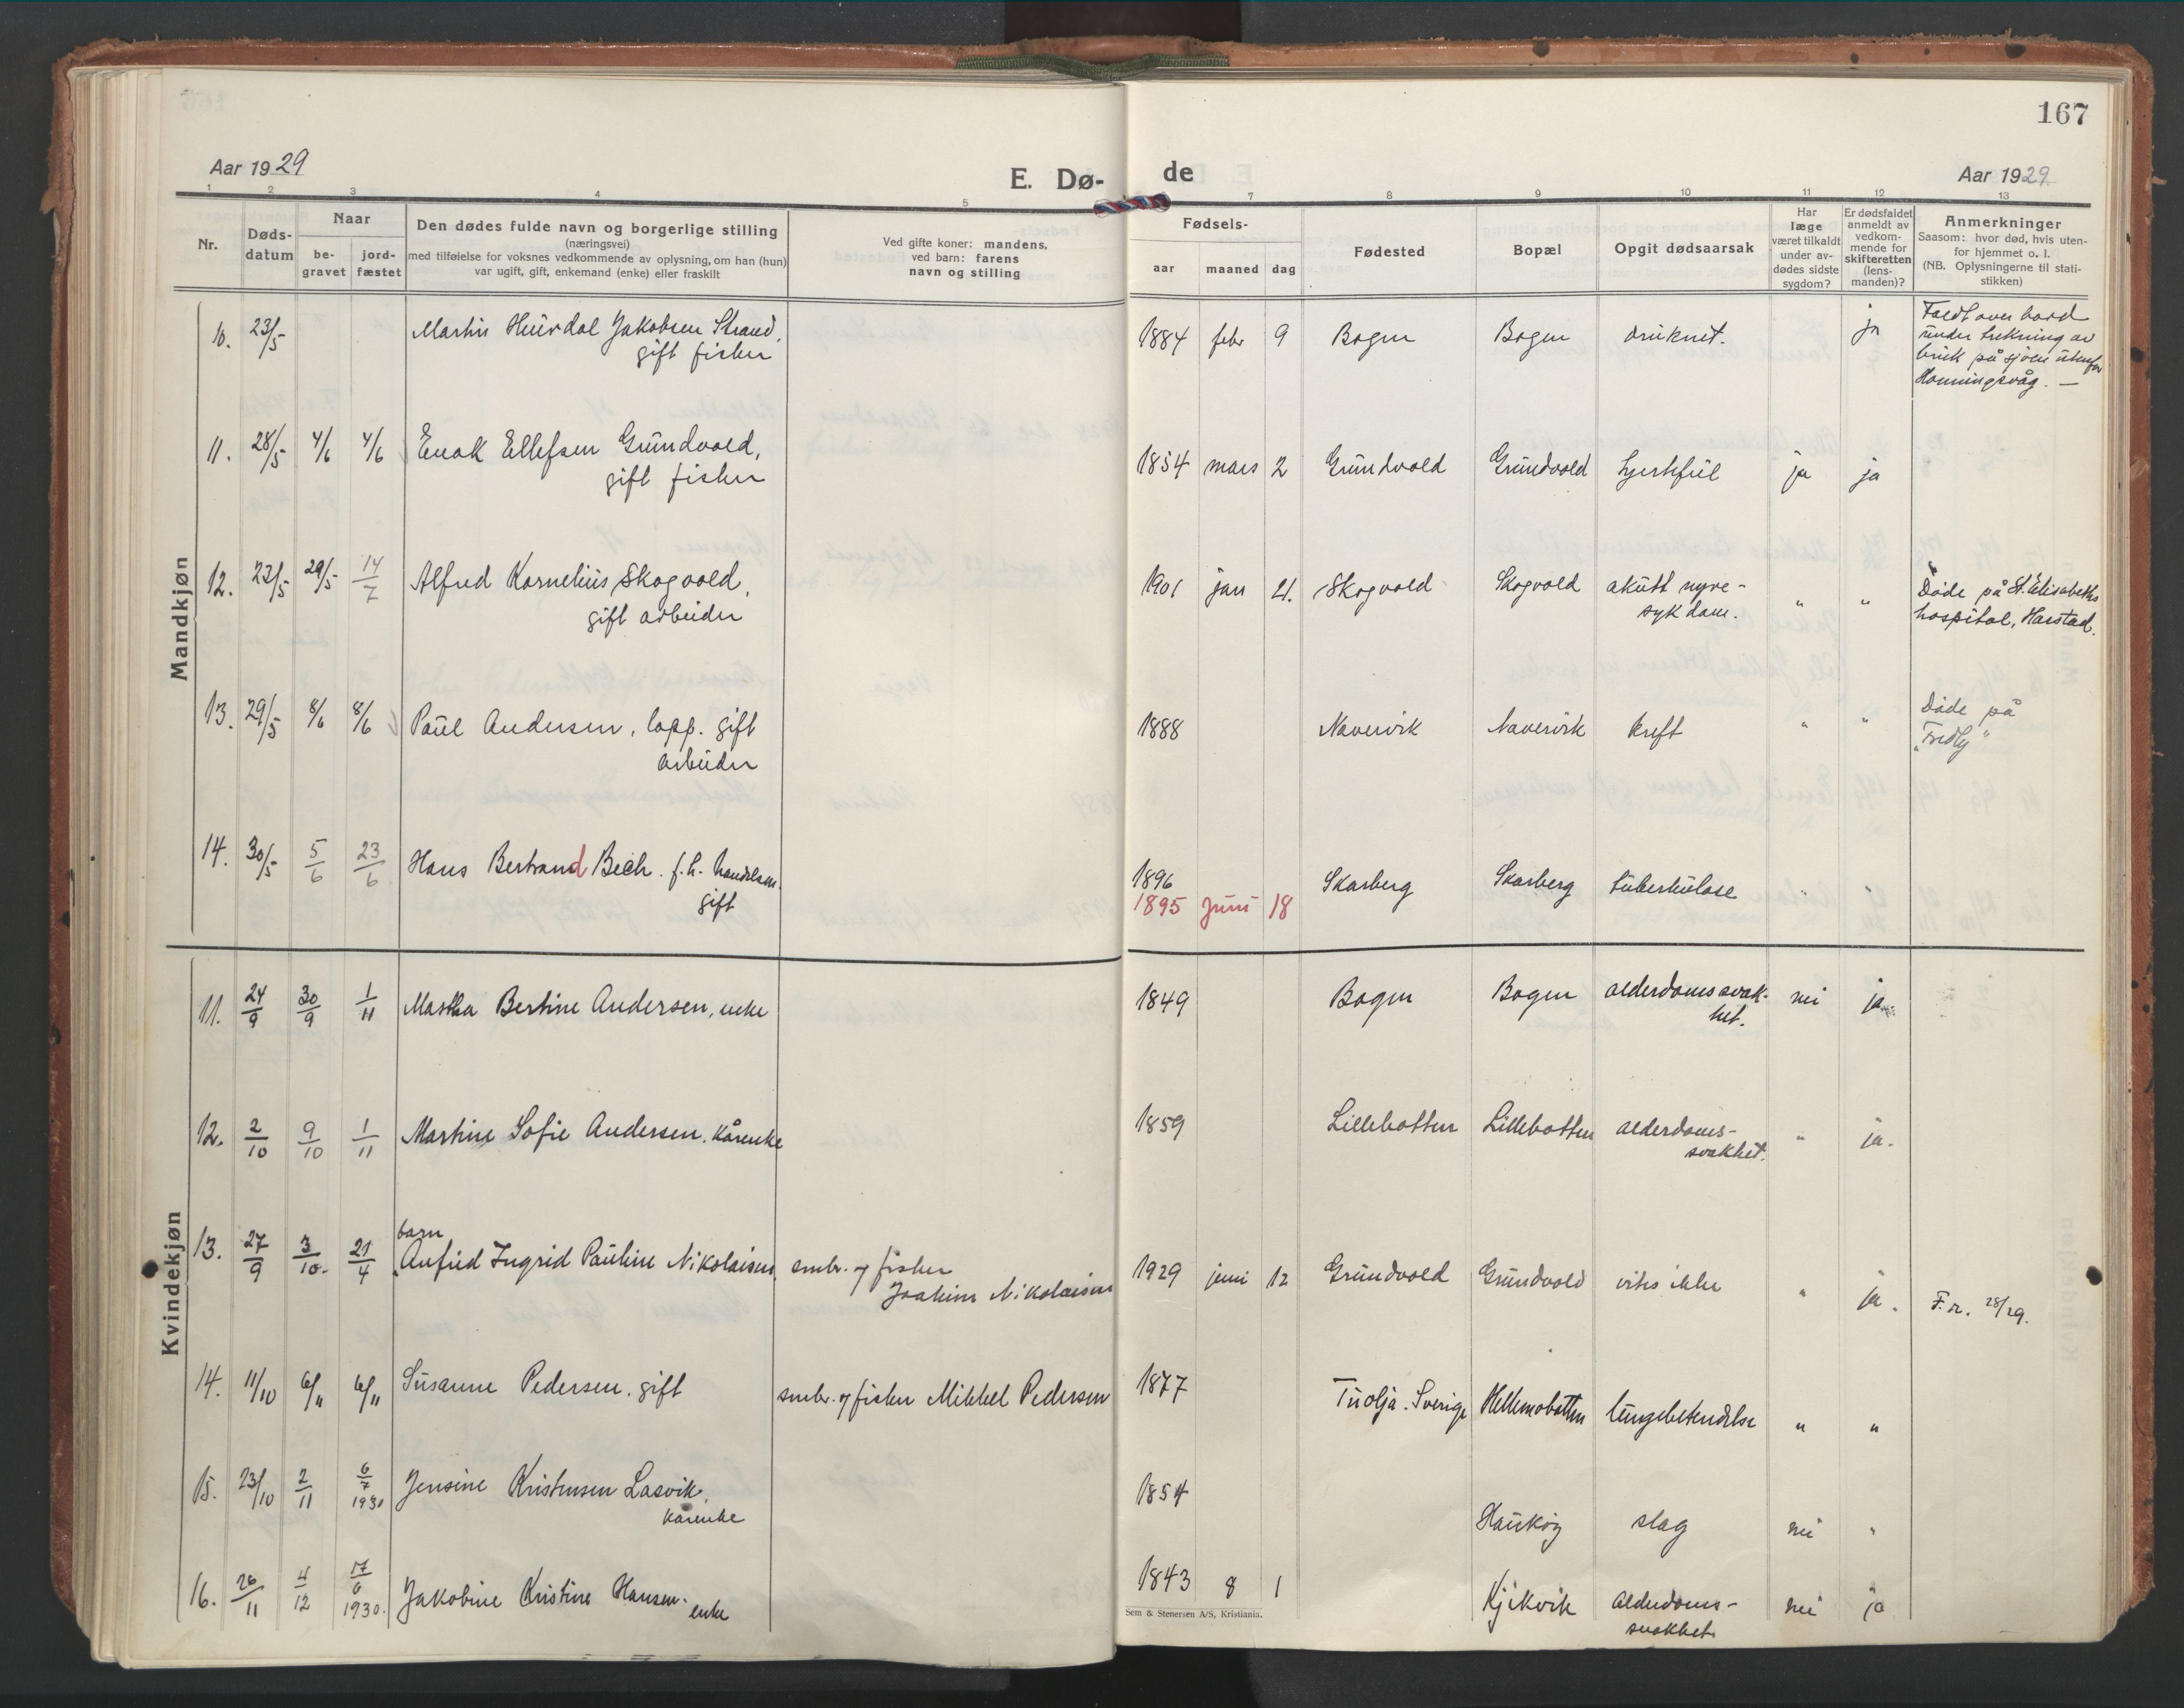 167
Aar 1929 E. Dø- de Aar 1929.
1 2 3 4 5 7 8 9 10 11 12 13
Nr.
Døds-
datum
Naar
be-
gravet
jord-
fæstet
Den dødes fulde navn og borgerlige stilling
(næringsvei)
med tilføielse for voksnes vedkommende av oplysning, om han (hun)
var ugift, gift, enkemand (enke) eller fraskilt
Ved gifte koner: mandens,
ved barn: farens
navn og stilling
Fødsels-
aar maaned dag
Fødested
Bopæl
Opgit dødsaarsak
Har
læge
været tilkaldt
under av-
dødes sidste
sygdom?
Er dødsfaldet
anmeldt av
vedkom-
mende for
skifteretten
(lens-
manden)?
Anmerkninger
Saasom: hvor død, hvis uten-
for hjemmet o. l.
(NB. Oplysningerne til stati-
stikken)
Mandkjøn
10. 23/5 Martin Hurdal Jakobsen Strand,
gift fisker
1884 febr 9 Bogen Bogen druknet. ja
Faldt over bord
under trekning av
bruk på sjøen utenfor
Honningsvåg. —
11. 28/5 4/6 4/6 Enok Ellefsen Grundvold,
gift fisker
1854 mars 2 Grundvold Grundvold hjertefeil ja ja
12. 23/5 29/5 14/7 Alfred Kornelius Skogvold,
gift arbeider
1901 jan 21. Skogvold Skogvold akutt nyre-
sykdom. " "
Døde på St. Elisabeths
hospital, Harstad.
13. 29/5 8/6 8/6 Paul Andersen, lapp. gift
arbeider
1888 Navervik Navervik kreft " "
Døde på
"Fredly"
14. 30/5 5/6 23/6 Hans Bertrand Bech. f.h. handelsm.
gift
1896 Skarberg Skarberg tuberkulose " "
1895 Juni 18
Kvindekjøn
11. 24/9 30/9 1/11 Martha Bertine Andersen, enke
1849 Bogen Bogen alderdomssvak-
het. nei ja
12. 2/10 9/10 1/11 Martine Sofie Andersen. kårenke
1859 Lillebotten Lillebotten alderdoms-
svakhet. " ja.
13. 27/9 3/10. 21/4 barn
Anfrid Ingrid Pauline Nikolaisen, smbr. og fisker
Joakim Nikolaisen
1929 juni 12 Grundvold Grundvold vites ikke " ja. F.r. 28/29.
14. 11/10 6/11 6/11 Susanne Pedersen. gift smbr. og fisker Mikkel Pedersen
1877 Tuolja. Sverige Hellemobotten lungebetendelse " "
15. 23/10 2/11 6/7 1930 Jensine Kristensen Lasvik,
kårenke
1854 Haukøy slag nei "
16. 26/11 4/12 17/6 1930. Jakobine Kristine Hansen. enke
1843 8 1 Kjikvik Alderdoms-
svakhet nei ja
Sem & Stenersen A/S, Kristiania.